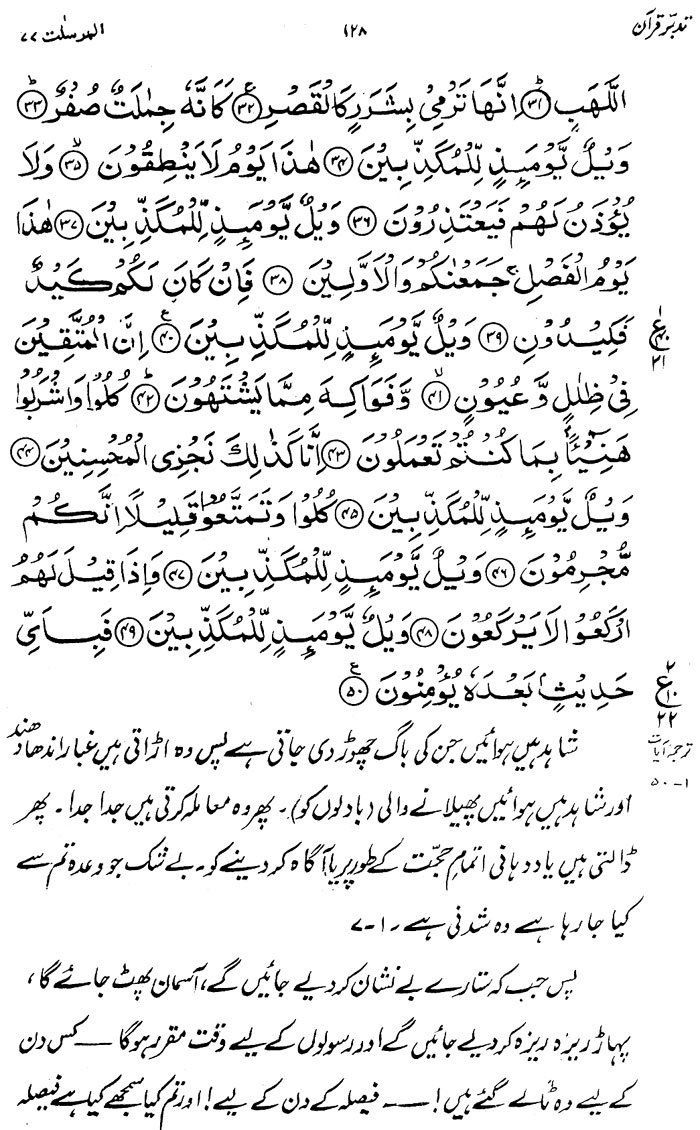 تدبّرِ قرآن ۱۲۸ المرسلٰت ۷۷
اللَّهَبِ ﴿۳۱﴾ اِنَّهَا تَرْمِيْ بِشَرَرٍ كَالْقَصْرِ ﴿۳۲﴾ كَاَنَّهٗ جِمٰلَتٌ صُفْرٌ ﴿۳۳﴾
وَيْلٌ يَّوْمَىِٕذٍ لِّلْمُكَذِّبِيْنَ ﴿۳۴﴾ هٰذَا يَوْمُ لَا يَنْطِقُوْنَ ﴿۳۵﴾ وَلَا
يُؤْذَنُ لَهُمْ فَيَعْتَذِرُوْنَ ﴿۳۶﴾ وَيْلٌ يَّوْمَىِٕذٍ لِّلْمُكَذِّبِيْنَ ﴿۳۷﴾ هٰذَا
يَوْمُ الْفَصْلِ ۚ جَمَعْنٰكُمْ وَالْاَوَّلِيْنَ ﴿۳۸﴾ فَاِنْ كَانَ لَكُمْ كَيْدٌ
فَكِيْدُوْنِ ﴿۳۹﴾ وَيْلٌ يَّوْمَىِٕذٍ لِّلْمُكَذِّبِيْنَ ﴿۴۰﴾ اِنَّ الْمُتَّقِيْنَ
ع ۱ ۴۰ ۲۱
فِيْ ظِلٰلٍ وَّعُيُوْنٍ ﴿۴۱﴾ وَّفَوَاكِهَ مِمَّا يَشْتَهُوْنَ ﴿۴۲﴾ كُلُوْا وَاشْرَبُوْا
هَنِيْٓـًٔۢا بِمَا كُنْتُمْ تَعْمَلُوْنَ ﴿۴۳﴾ اِنَّا كَذٰلِكَ نَجْزِي الْمُحْسِنِيْنَ ﴿۴۴﴾
وَيْلٌ يَّوْمَىِٕذٍ لِّلْمُكَذِّبِيْنَ ﴿۴۵﴾ كُلُوْا وَتَمَتَّعُوْا قَلِيْلًا اِنَّكُمْ
مُّجْرِمُوْنَ ﴿۴۶﴾ وَيْلٌ يَّوْمَىِٕذٍ لِّلْمُكَذِّبِيْنَ ﴿۴۷﴾ وَاِذَا قِيْلَ لَهُمُ
ارْكَعُوْا لَا يَرْكَعُوْنَ ﴿۴۸﴾ وَيْلٌ يَّوْمَىِٕذٍ لِّلْمُكَذِّبِيْنَ ﴿۴۹﴾ فَبِاَيِّ
حَدِيْثٍۢ بَعْدَهٗ يُؤْمِنُوْنَ ﴿۵۰﴾
۲ ع ۱۰ ۲۲
ترجمۂ آیات
۱-۵۰
شاہد ہیں ہوائیں جن کی باگ چھوڑ دی جاتی ہے پس وہ اڑاتی ہیں غبار اندھا دھند
اور شاہد ہیں ہوائیں پھیلانے والی (بادلوں کو)۔ پھر وہ معاملہ کرتی ہیں جدا جدا۔ پھر
ڈالتی ہیں یاددہانی اتمامِ حجت کے طور پر یا آگاہ کر دینے کو۔ بے شک جو وعدہ تم سے
کیا جا رہا ہے وہ شدنی ہے۔ ۱-۷
پس جب کہ ستارے بے نشان کر دیے جائیں گے، آسمان پھٹ جائے گا،
پہاڑ ریزہ ریزہ کر دیے جائیں گے اور رسولوں کے لیے وقت مقرر ہوگا — کس دن
کے لیے وہ ٹالے گئے ہیں! — فیصلہ کے دن کے لیے! اور تم کیا سمجھے کیا ہے فیصلہ